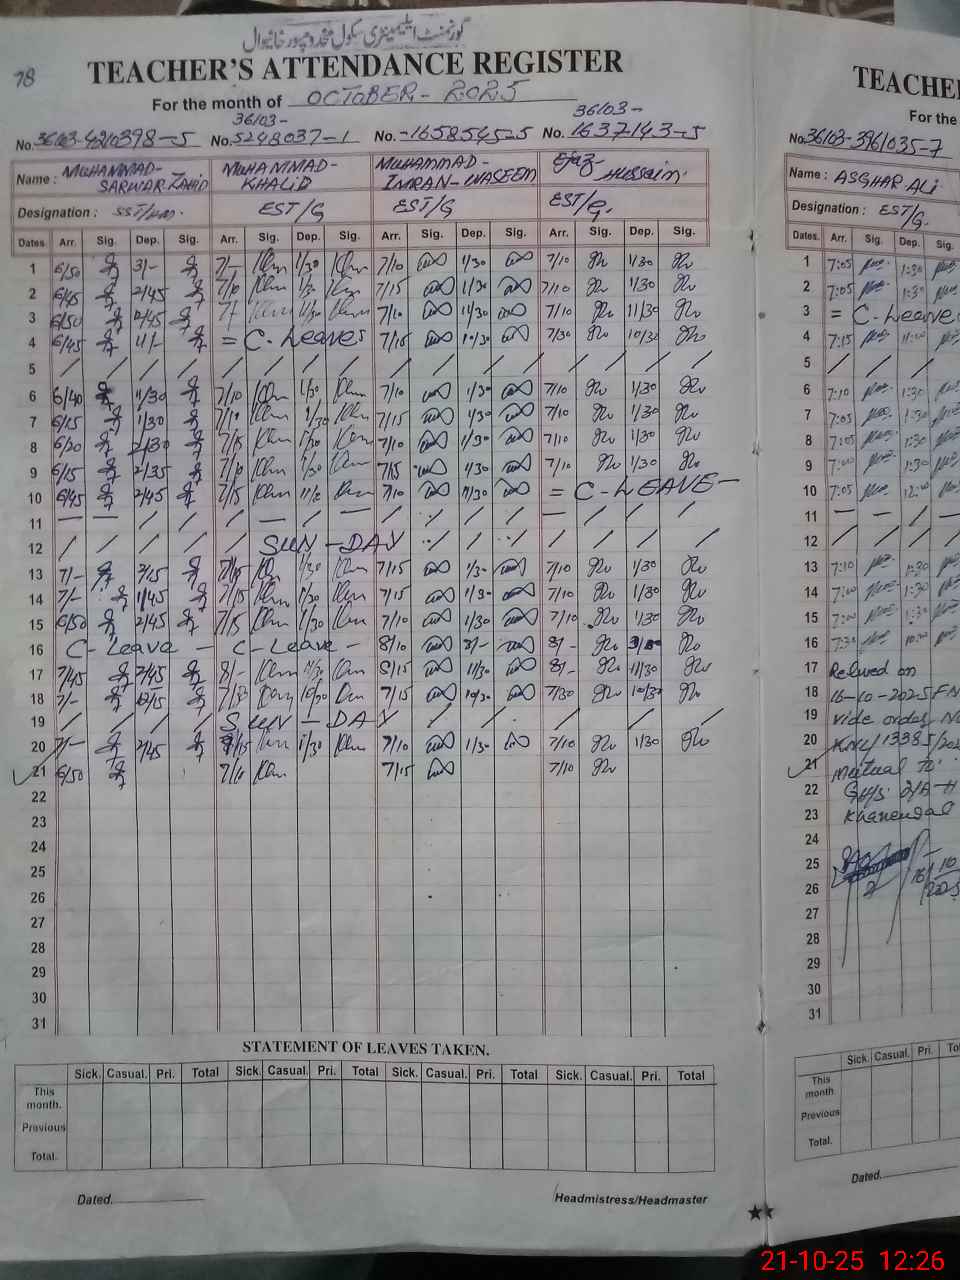 گورنمنٹ ایلیمینٹری سکول مخدوم پور خانیوال
78
TEACHER'S ATTENDANCE REGISTER
For the month of OCTOBER - 2025
No. 36103-4210398-5 No. 36103-5248037-1 No. -1658545-5 No. 36103-1637143-5
Name: MUHAMMAD-SARWAR ZAHID MUHAMMAD-KHALID MUHAMMAD-IMRAN-WASEEM Ejaz Hussain.
Designation: SST/ EST/G EST/G EST/G.
Dates Arr. Sig. Dep. Sig. Arr. Sig. Dep. Sig. Arr. Sig. Dep. Sig. Arr. Sig. Dep. Sig.
1 6/50 3/- 7/- 1/30 7/10 1/30 7/10 1/30
2 6/45 2/45 7/10 1/30 7/15 1/30 7/10 1/30
3 6/50 12/45 7/ 7/10 11/30 7/10 11/30
4 6/45 11/- = C-Leaves 7/15 10/30 7/30 10/30
5 / / / / / / / / / / / / / / / /
6 6/40 1/30 7/10 1/30 7/10 1/30 7/10 1/30
7 6/15 1/30 7/10 1/30 7/15 1/30 7/10 1/30
8 6/20 2/30 7/15 1/30 7/10 1/30 7/10 1/30
9 6/15 2/35 7/10 1/30 7/15 1/30 7/10 1/30
10 6/45 2/45 7/15 7/10 = C-LEAVE-
11
12 / / / / SUN-DAY / / / / / / /
13 7/- 2/15 7/15 1/30 7/15 1/30 7/10 1/30
14 7/- 1/45 7/15 1/30 7/15 1/30 7/10 1/30
15 6/50 2/45 7/15 1/30 7/10 1/30 7/10 1/30
16 C-Leave - C-Leave - 8/10 3/- 8/-
17 7/45 2/45 8/- 8/15 11/30 8/- 11/30
18 7/- 12/15 10/30 7/15 10/30 7/30 10/30
19 / / / / SUN-DAY / / / / / /
20 7/- 2/45 7/15 1/30 7/10 1/30 7/10 1/30
21 6/50 7/10 7/15 7/10
22
23
24
25
26
27
28
29
30
31
STATEMENT OF LEAVES TAKEN.
Sick. Casual. Pri. Total Sick. Casual. Pri. Total Sick. Casual. Pri. Total Sick. Casual. Pri. Total
This month.
Previous
Total.
Dated.
Headmistress/Headmaster
TEACHE
For the
No. 36103-3961035-7
Name: ASGHAR ALI
Designation: EST/G.
Dates. Arr. Sig. Dep. Sig.
1 7:05 1:30
2 7:05 1:30
3 = C-Leave
4 7:15 11:00
5 / / / /
6 7:10 1:30
7 7:05 1:30
8 7:05 1:30
9 7:00 1:30
10 7:05 12:00
11
12 / / / /
13 7:10 1:30
14 7:00 1:30
15 7:00 1:30
16 7:30 10:00
17 Relieved on
18 16-10-2025 FN
19 vide order No
20 KNL/13385/202
21 mutual to
22
23
24
25
26 16/10/2025
27
28
29
30
31
Sick. Casual. Pri. To
This month.
Previous
Total.
Dated.
21-10-25 12:26